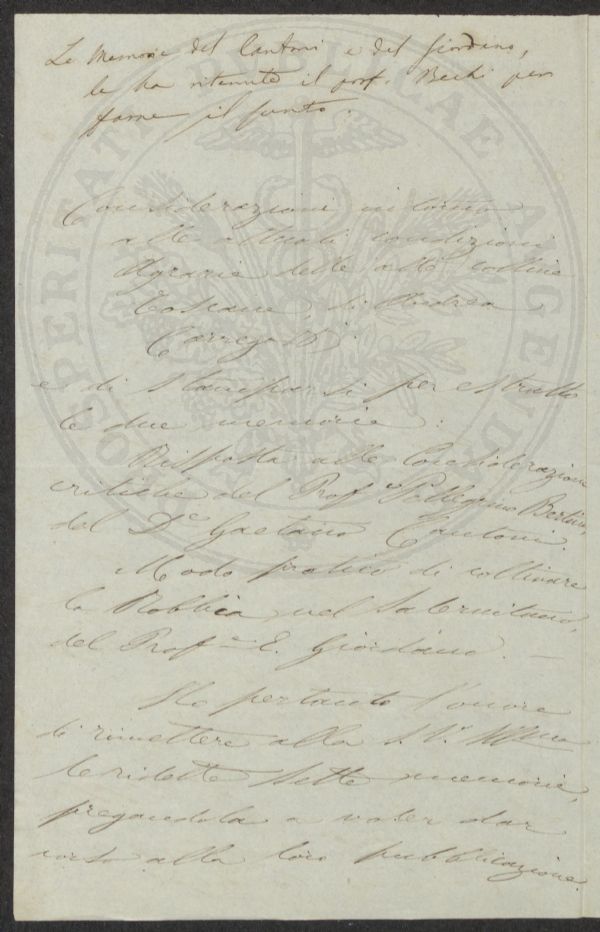 Le Memorie del Cantoni e del Giordano,
le ha ritenute il prof. Bechi per
farne il sunto.
Considerazioni intorno
alle attuali condizioni
Agrarie delle alte colline
Toscane, di Andrea
e di stamparsi per estratto
le due memorie:
Risposta alle Considerazioni
critiche del Prof.e Pellegrino Bertini,
del D.r Gaetano Cantoni.
Modo pratico di coltivare
la Robbia nel Salernitano,
del Prof.e E. Giordano. —
Ho pertanto l'onore
di rimettere alla S.V. Ill.ma
le ridette sette memorie,
pregandola a voler dar
corso alla loro pubblicazione.
PROSPERITATI PUBLICAE AUGENDAE